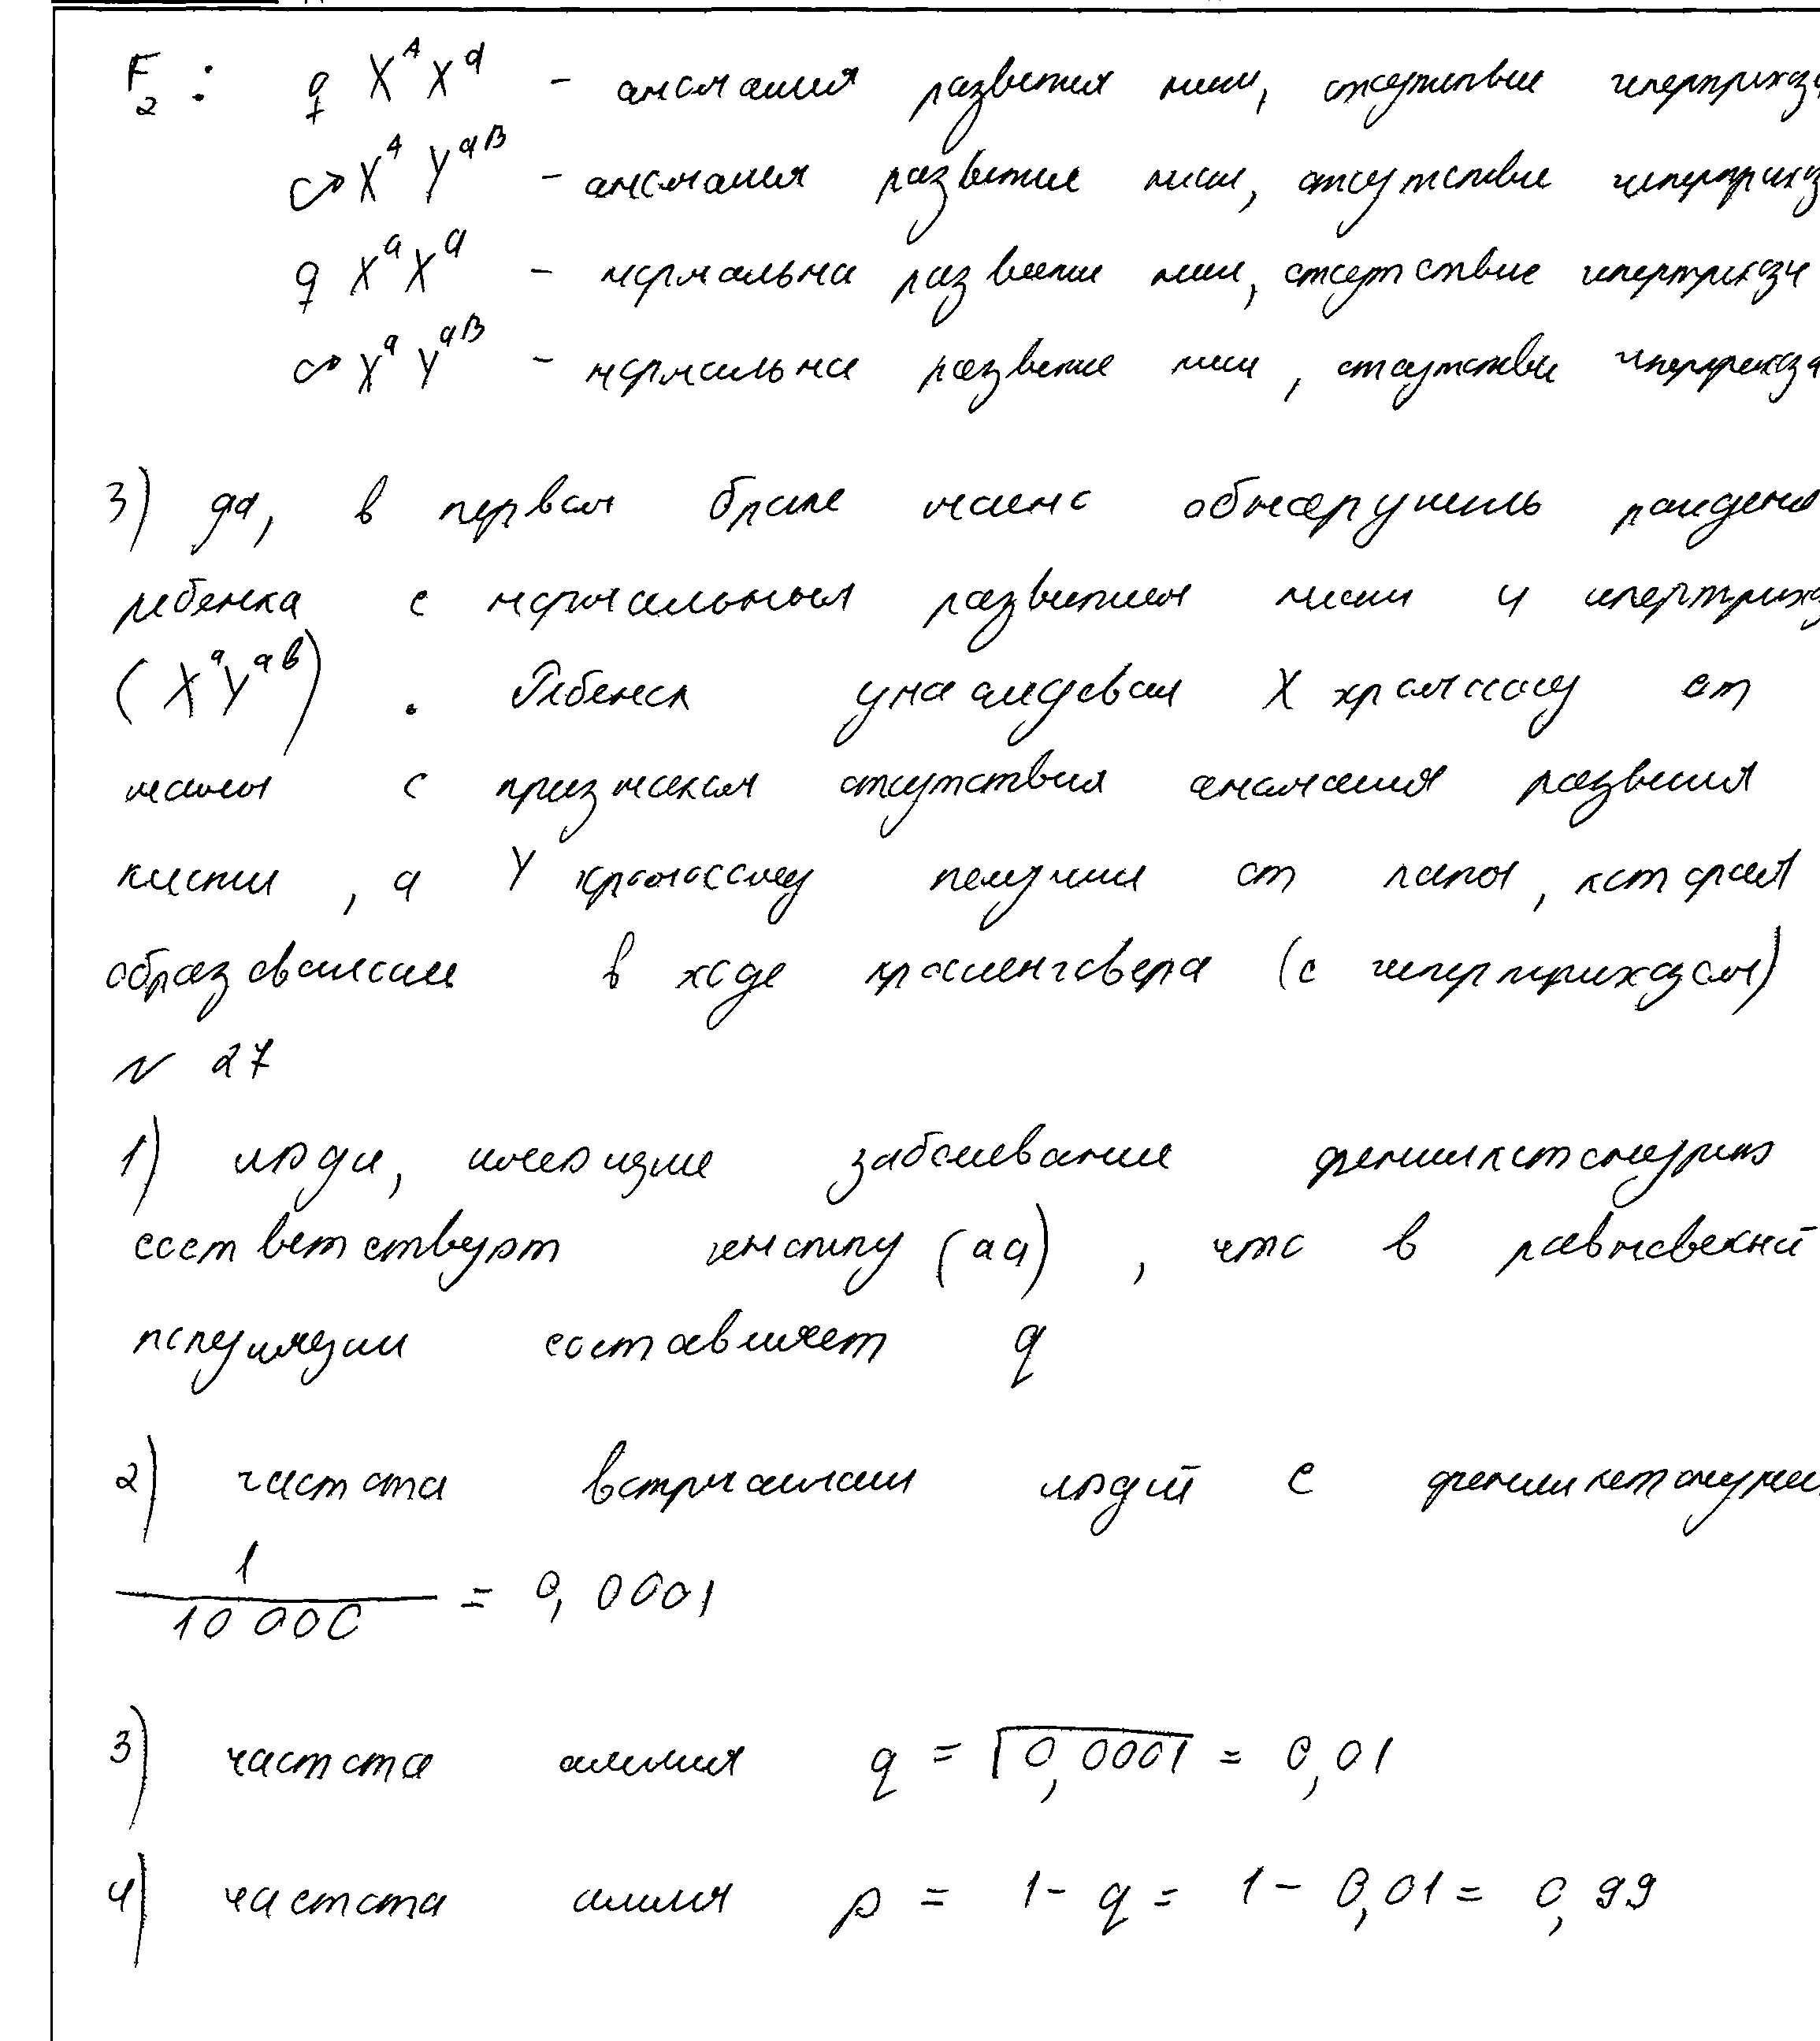 F₂ : ♀ X^A X^a – аномалия развития кисти, отсутствие гипертрихоза
♂ X^A Y^aB – аномалия развития кисти, отсутствие гипертрихоз
♀ X^a X^a – нормальна развитие кисти, отсутствие гипертрихоз
♂ X^a Y^aB – нормальна развитие кисти, отсутствие гипертрихоза
3) да, в первом браке можно обнаружить рождение
ребенка с нормальным развитием кисти и гипертрихоз
(X^a Y^ab) . Ребенок унаследовал X хромосому от
мамы с признаком отсутствия аномалия развития
кисти , а Y хромосому получил от папы, которая
образовалсяе в ходе кроссинговера (с гипертрихозом)
N 27
1) люди, имеющие заболевание фенилкетонурию
соответствуют генотипу (aa) , что в равновесной
популяции составляет q
2) частота встречаемости людей с фенилкетонурией
1/10 000 = 0,0001
3) частота аллеля q = √0,0001 = 0,01
4) частота аллеля p = 1 - q = 1 - 0,01 = 0,99